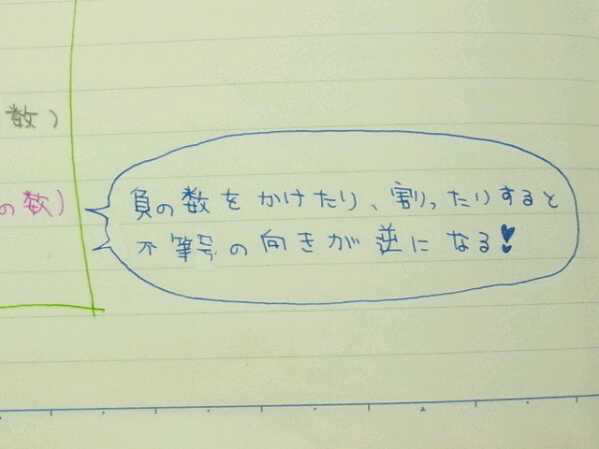 数)
の数)
負の数をかけたり、割ったりすると
不等号の向きが逆になる!